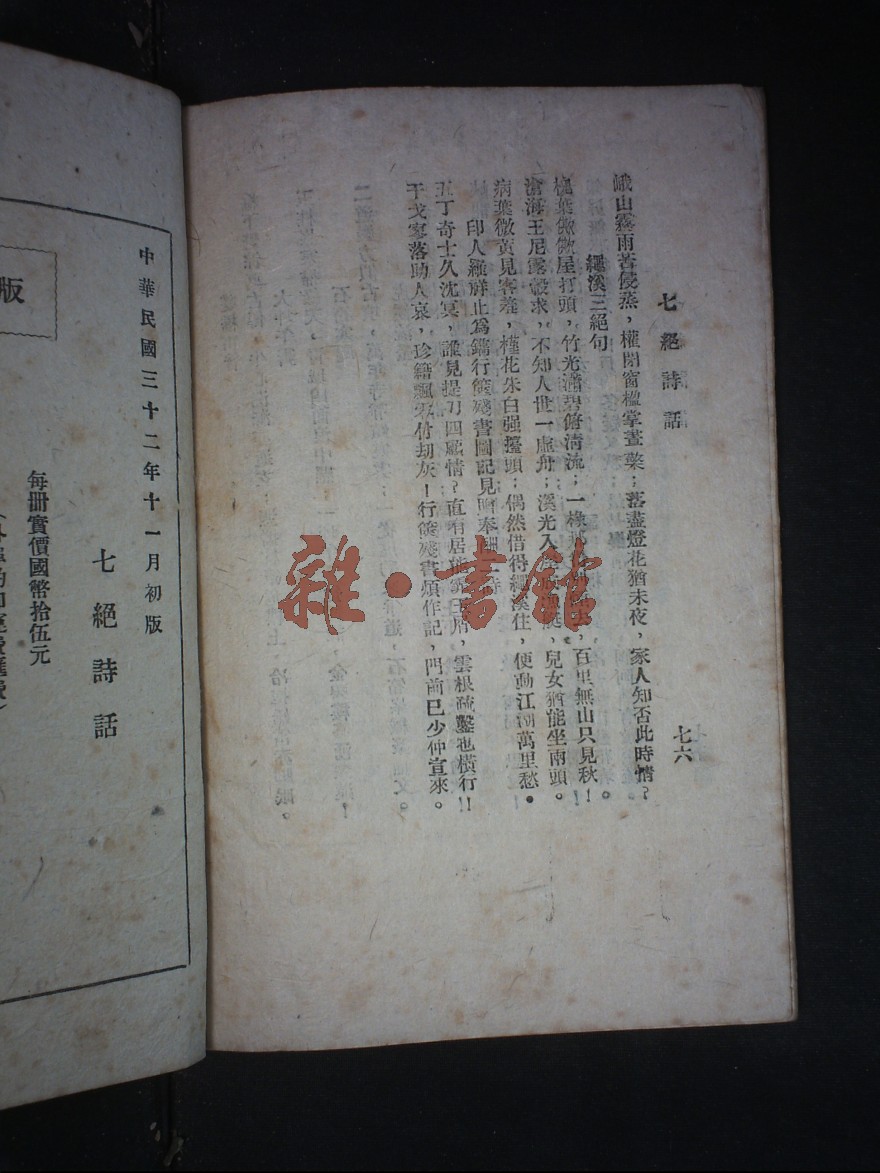 七絕詩話
七六
峨山霧雨苦侵蒸，權閉窗櫺掌晝；落盡燈花猶未夜，家人知否此時情？
繩溪三絕句
槐葉微微屋打頭，竹光滿碧俯清流；一，百里無山只見秋！
滄海王尼露殼求，不知人世一虛舟；溪光入，兒女猶能坐南頭。
病葉微黃見客羞，槿花朱白强擡頭；偶然借得繩溪住，便動江湖萬里愁。
印人羅祥止爲鐫行篋殘書圖記見贈奉酬二
五丁奇士久沈冥，誰見提刀四情？直，雲根疏鑿也橫行！！
干戈寥落助人哀，珍籍飄零付劫灰！行篋殘書煩作記，門前已少仲宣來。
版
中華民國三十二年十一月初版
七絕詩話
每冊實價國幣拾伍元
雜·書館